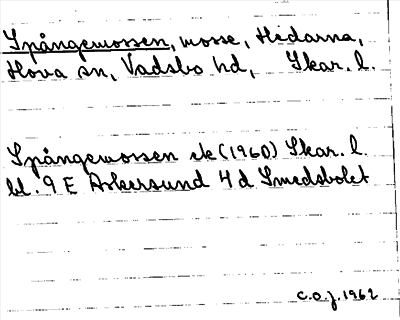 Spångemossen, mosse, Hidarna,
Hova sn, Vadsbo hd, Skar. l.
Spångemossen ek (1960) Skar. l.
bl. 9 E Askersund 4 d Smedsbolet
C.O.J. 1962